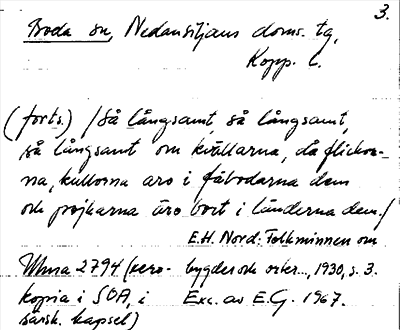 3.
Boda sn, Nedansiljans doms. tg,
Kopp. l.
(forts.) /så långsamt, så långsamt,
så långsamt om kvällarna, då flickor-
na, kullorna äro i fäbodarna dem
och pojkarna äro bort i länderna dem./
E.H. Nord: Folkminnen om
Uma 2794 (xero- bygder och orter.., 1930, s. 3.
kopia i SOA, i Exc. av E.G. 1967.
särsk. kapsel)